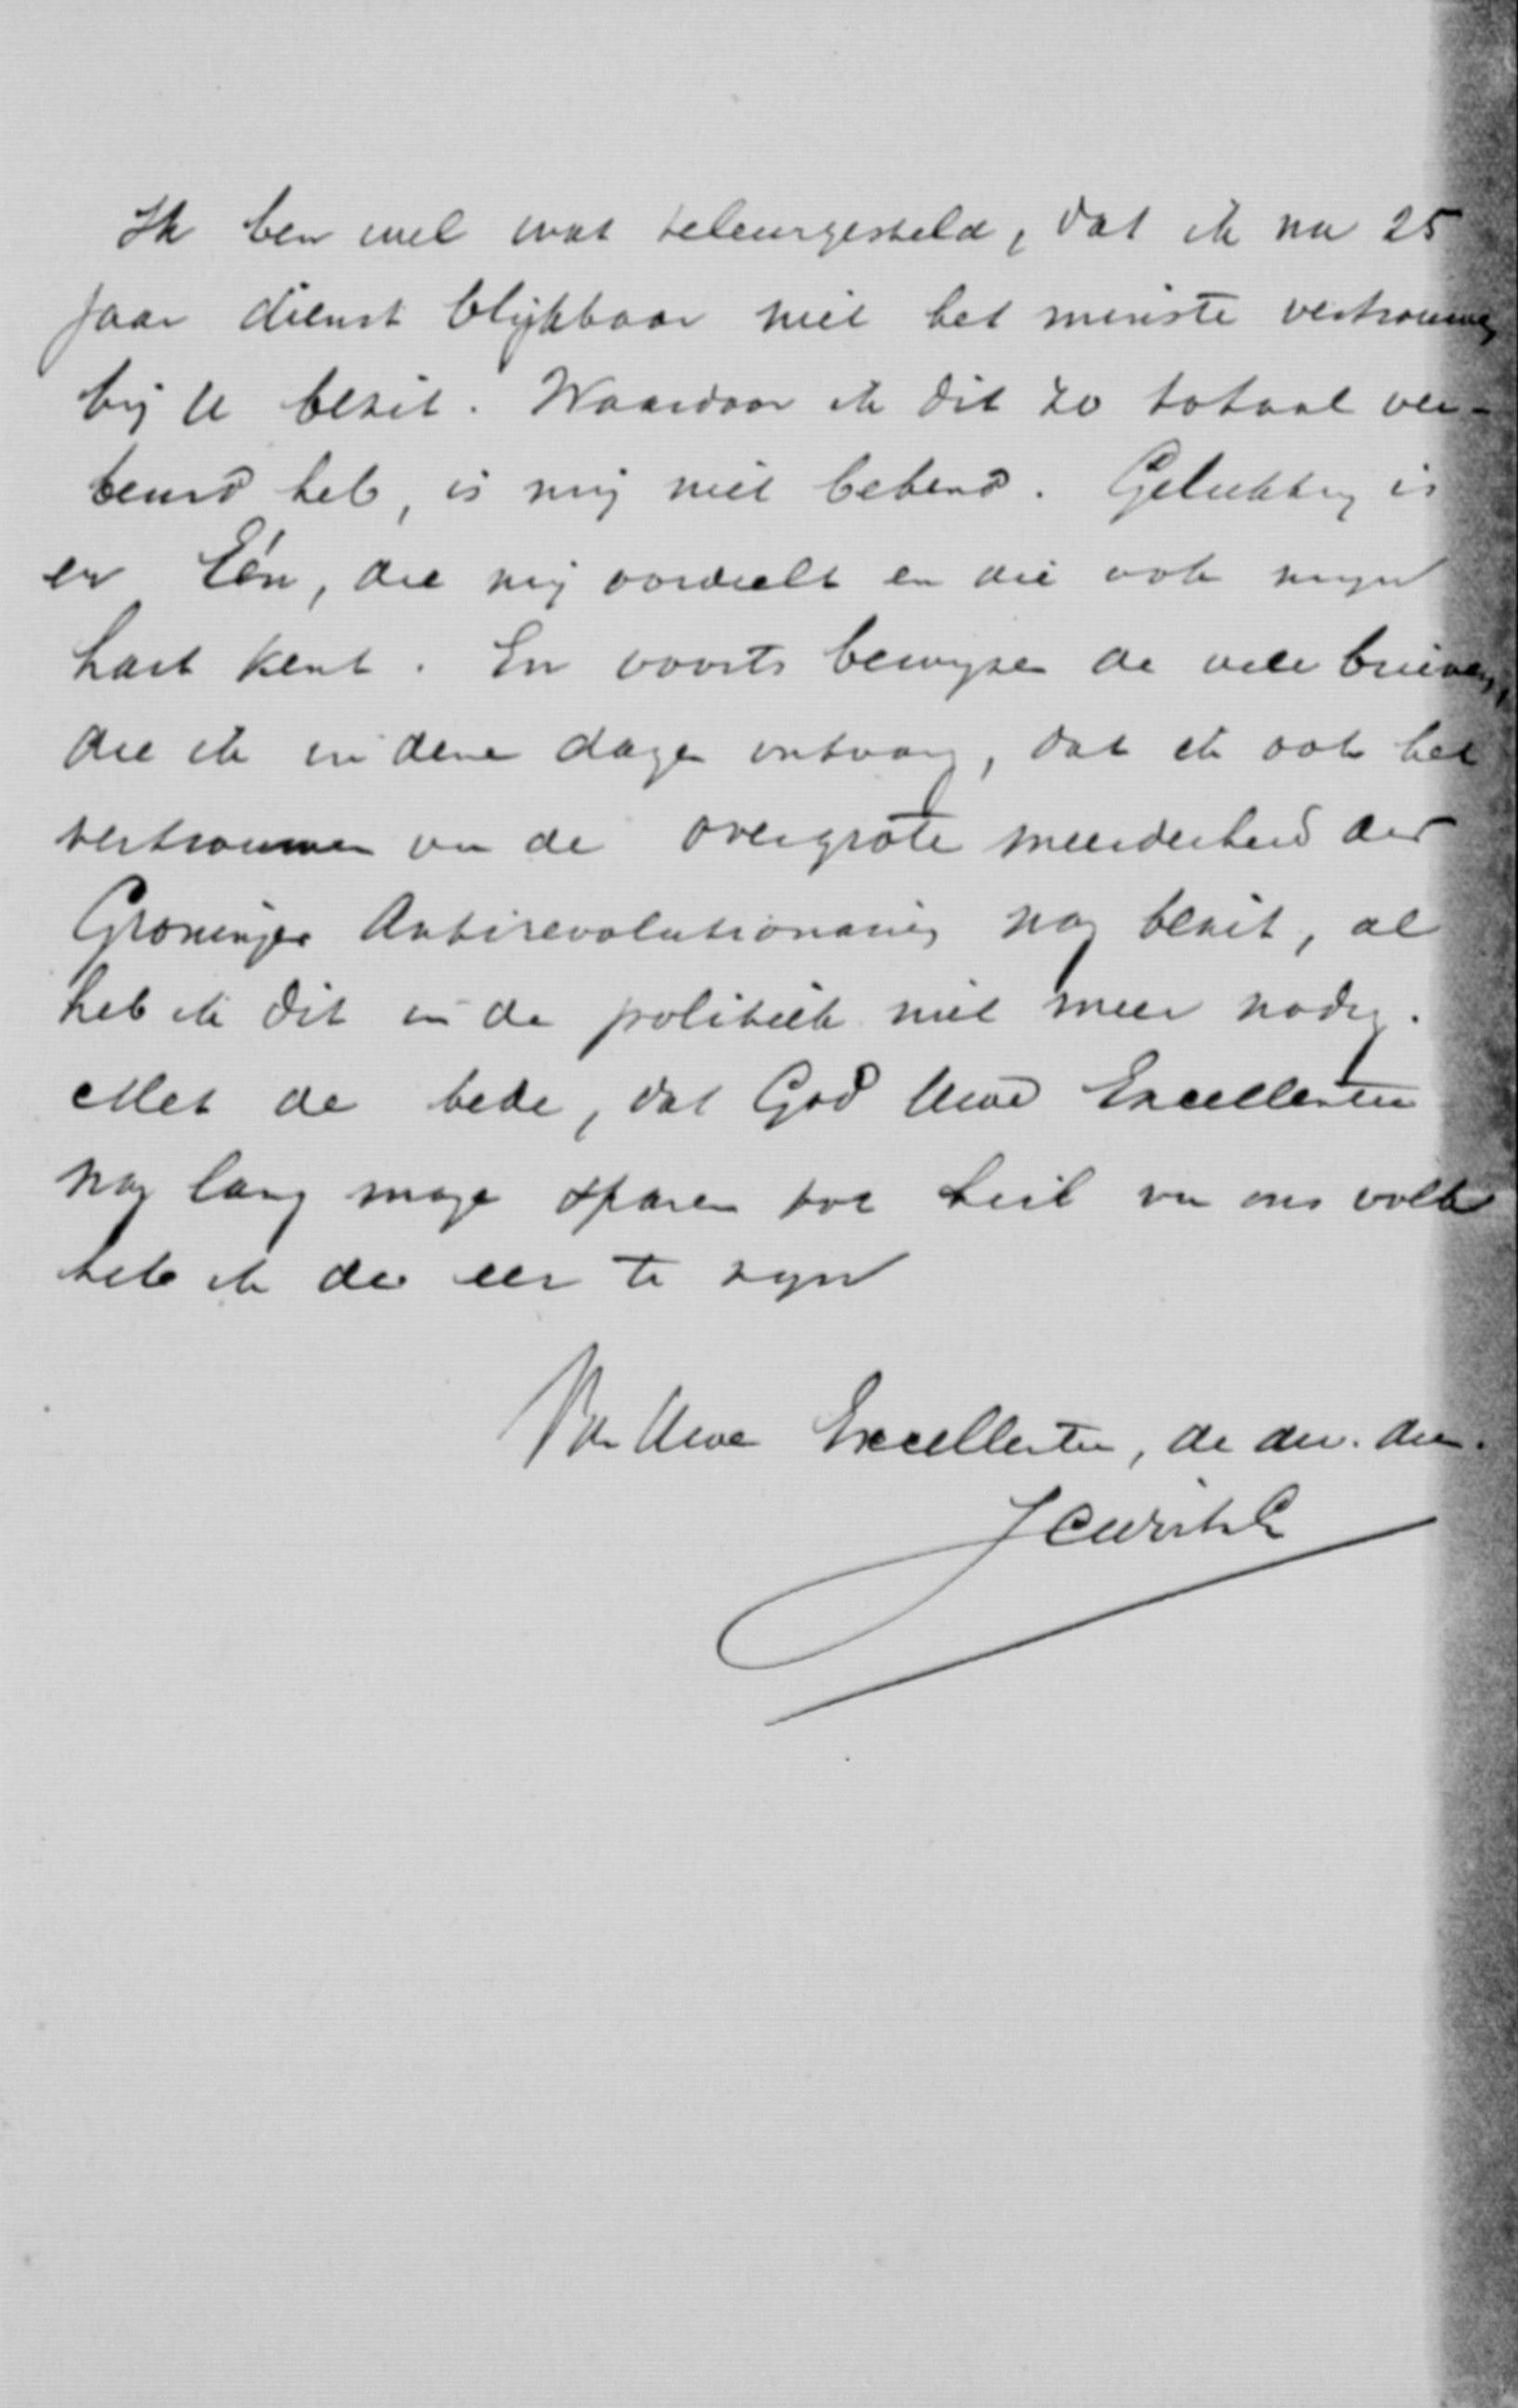 Ik ben wel wat teleurgesteld, dat ik na 25
jaar dienst blijkbaar niet het minste vertrouwen
bij U bezit. Waardoor ik dit zo totaal ver-
beurd heb, is mij niet bekend. Gelukkig is
er Eén, die mij oordeelt en die ook mijn
hart kent. En voorts bewijzen de vele brieven,
die ik in deze dagen ontvang, dat ik ook het
vertrouwen van de overgrote meerderheid der
Groninger Antirevolutionairen nog bezit, al
heb ik dit in de politiek niet meer nodig.
Met de bede, dat God Uwe Excellentie
nog lang moge sparen tot heil van ons volk
heb ik de eer te zijn
Van Uwe Excellentie, de dw. dn.